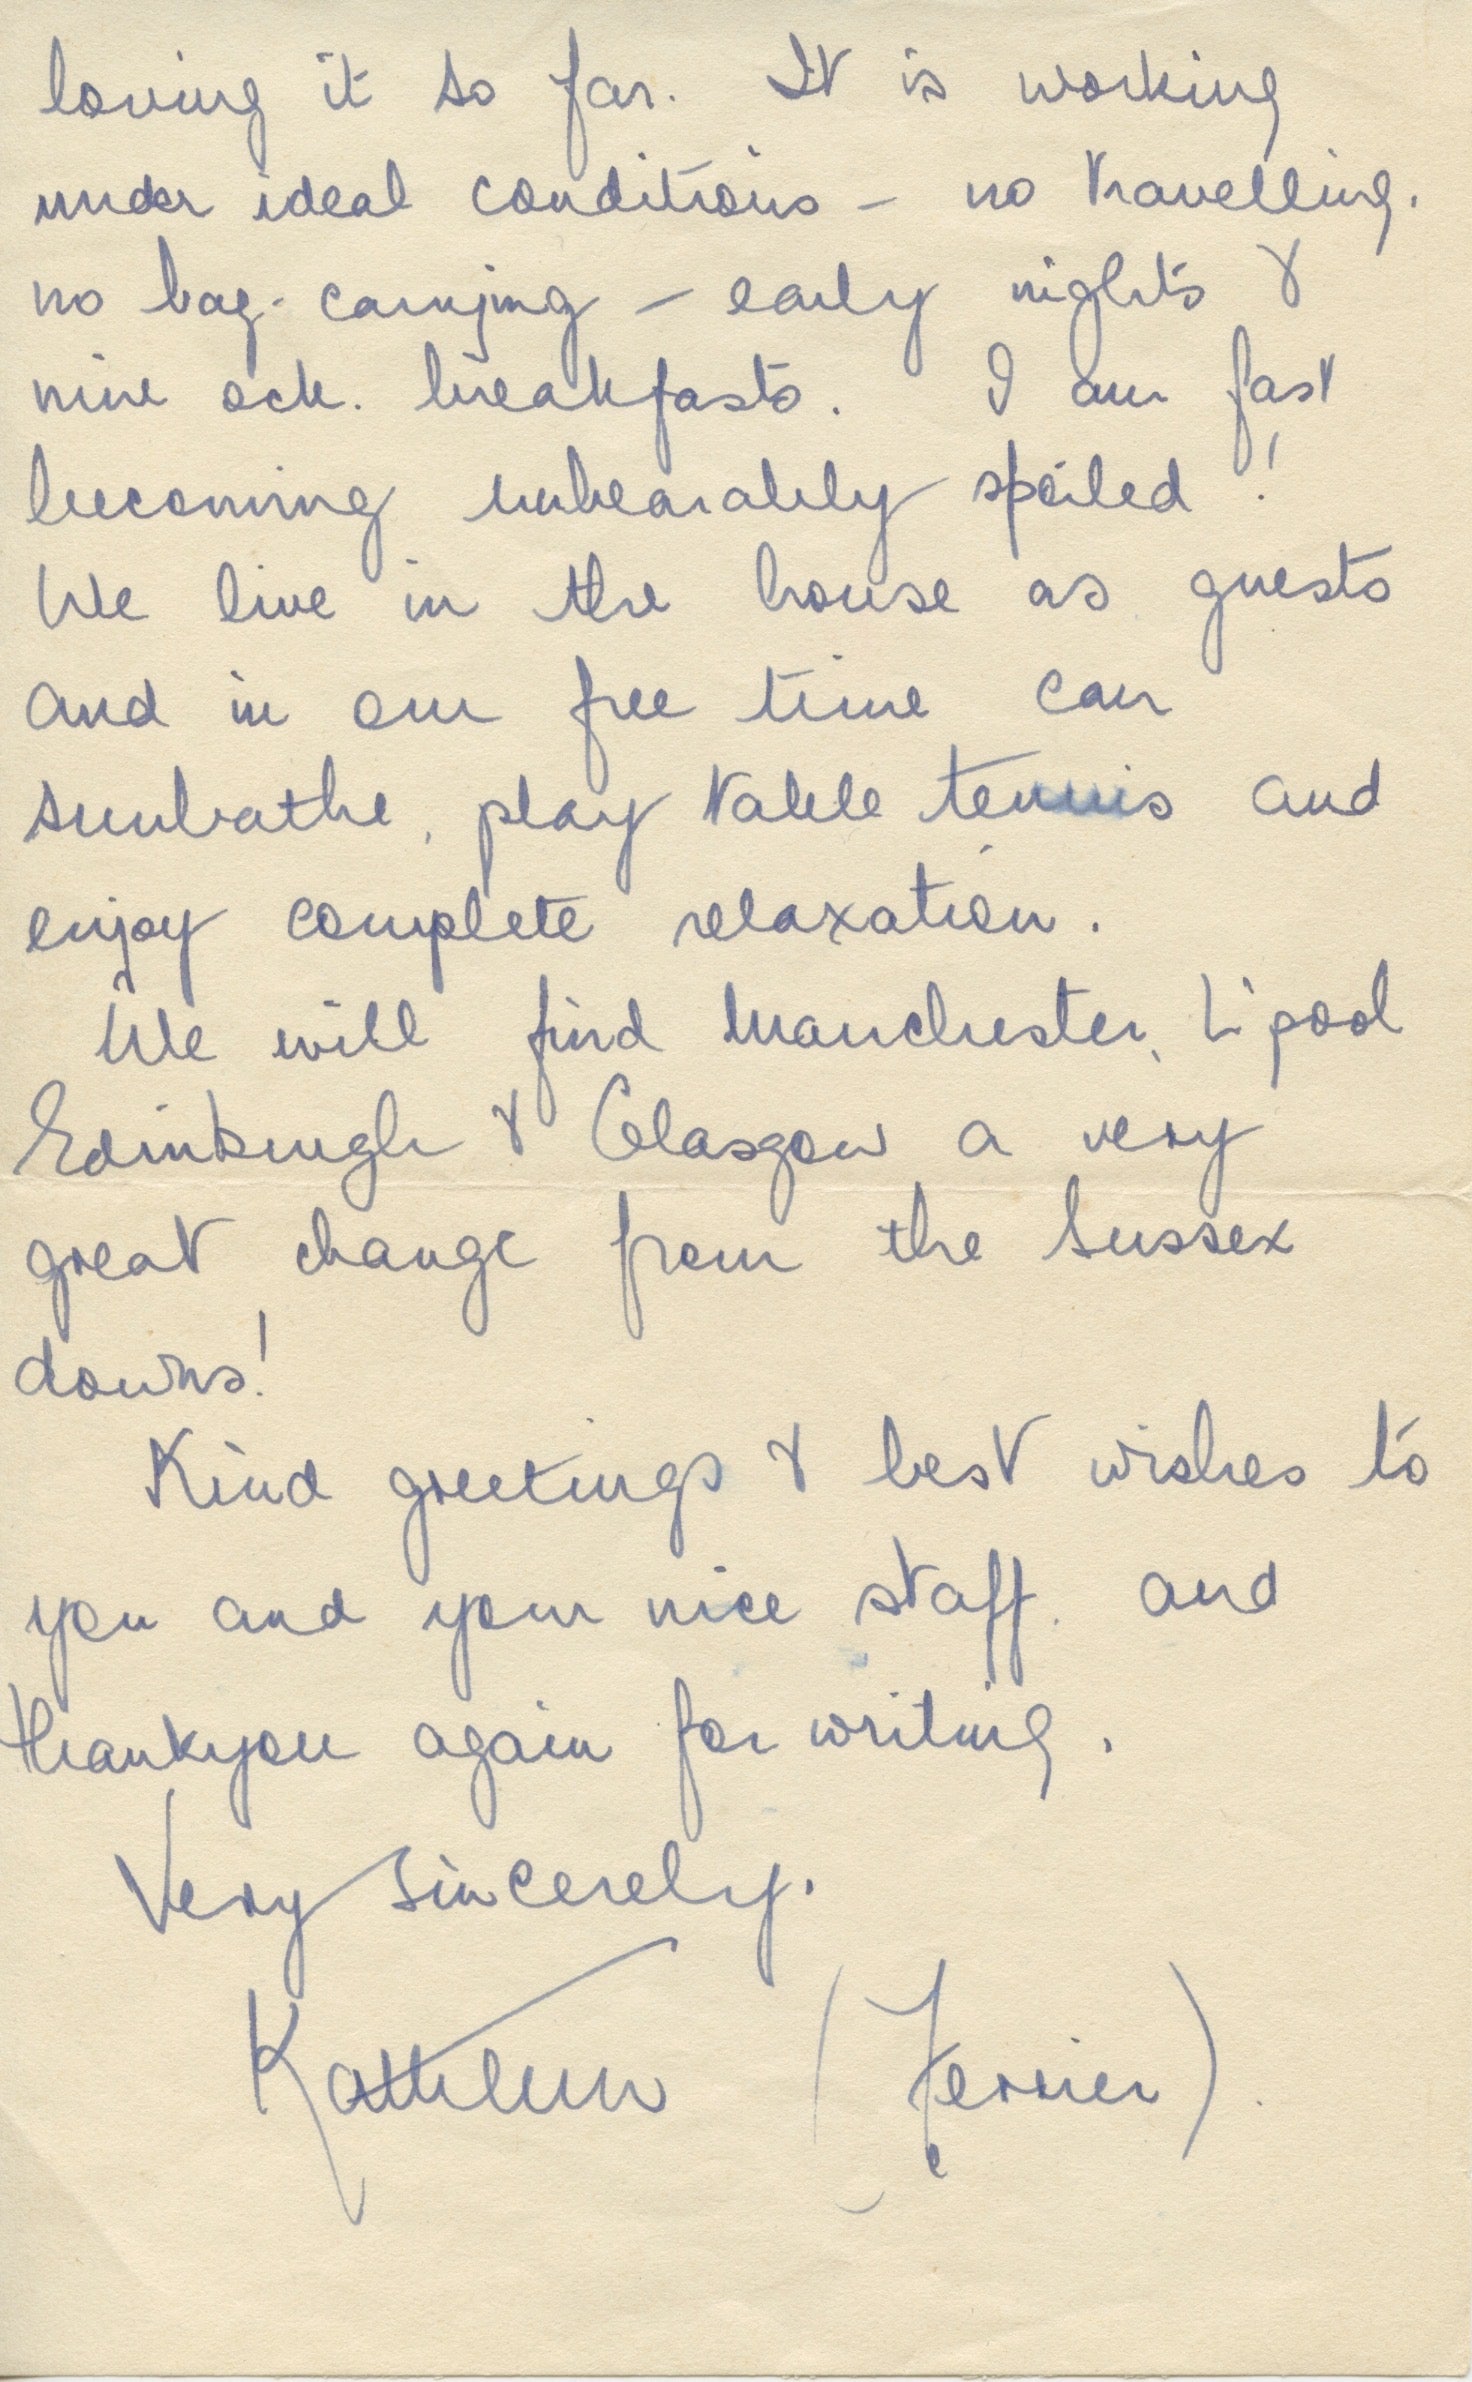 loving it so far. It is working
under ideal conditions – no travelling.
no bag-carrying – early nights &
nine ock. breakfasts. I am fast
becoming unbearably spoiled!
We live in the house as guests
and in our free time can
sunbathe, play table tennis and
enjoy complete relaxation.
We will find Manchester, L'pool
Edinburgh & Glasgow a very
great change from the Sussex
downs!
Kind greetings & best wishes to
you and your nice staff. and
thankyou again for writing.
Very sincerely.
Kathleen (Ferrier).